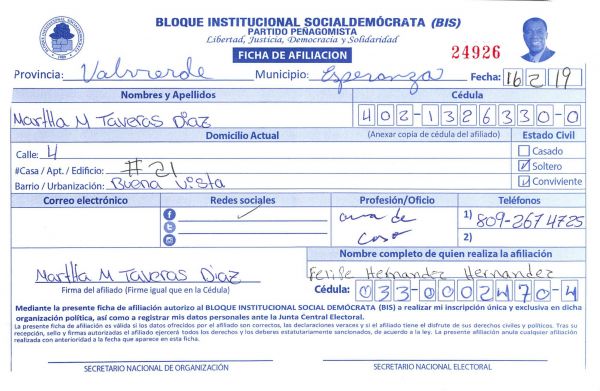 BLOQUE INSTITUCIONAL SOCIALDEMÓCRATA (BIS)
PARTIDO PEÑAGOMISTA
Libertad, Justicia, Democracia y Solidaridad
FICHA DE AFILIACION
24926
Provincia: Valvrerde Municipio: Esperanza Fecha: 16/2/19
Nombres y Apellidos Cédula
Martha M Taveras Diaz 402-1326330-0
Domicilio Actual (Anexar copia de cédula del afiliado) Estado Civil
Calle: 4 Casado
#Casa / Apt. / Edificio: #21 Soltero
Barrio / Urbanización: Buena Vista Conviviente
Correo electrónico Redes sociales Profesión/Oficio Teléfonos
ama de casa
1) 809-267 4725
2)
Nombre completo de quien realiza la afiliación
Martha M Taveras Diaz Hernandez Hernandez
Firma del afiliado (Firme igual que en la Cédula) Cédula: 033-0002470-4
Mediante la presente ficha de afiliación autorizo al BLOQUE INSTITUCIONAL SOCIAL DEMÓCRATA (BIS) a realizar mi inscripción única y exclusiva en dicha
organización política, así como a registrar mis datos personales ante la Junta Central Electoral.
La presente ficha de afiliación es válida si los datos ofrecidos por el afiliado son correctos, las declaraciones veraces y si el afiliado tiene el disfrute de sus derechos civiles y políticos. Tras su
recepción, sello y firmas autorizadas el afiliado ejercerá todos los derechos y los deberes estatutariamente sancionados, de acuerdo a la ley. La presente afiliación anula cualquier afiliación
realizada con anterioridad a la fecha que aparece en esta ficha.
SECRETARIO NACIONAL DE ORGANIZACIÓN SECRETARIO NACIONAL ELECTORAL